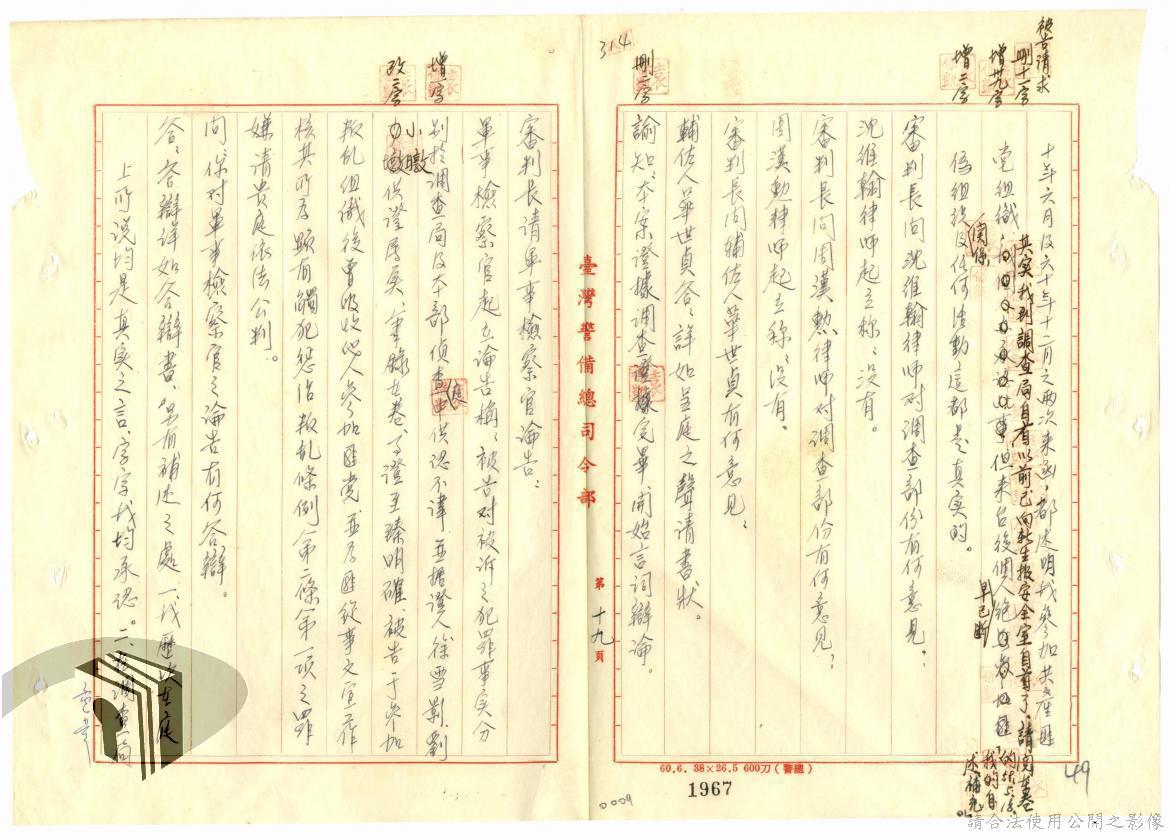 被告請求
刪十一字
增廿九字
增二字
十年六月及六十年十二月之兩次來函,都述明我參加共產匪
其實我到調查局自首以前已向新生報安全室自首了,請閱卷
我的自
述補充
党組織,但來台後個人
早已斷
關係
偽組織及任何活動這都是真實的。
審判長問沈維翰律師对調查部份有何意見:
沈維翰律師起立称:沒有。
審判長問周漢勳律師对調查部份有何意見:
周漢勳律師起立称:沒有。
審判長問輔佐人華世貞有何意見:
輔佐人華世貞答:詳如呈庭之聲請書狀。
刪二字
諭知:本案證據調查完畢,開始言詞辯論。
314
臺灣警備總司令部
第十九頁
審判長請軍事檢察官論告:
軍事檢察官起立論告稱:被告对被訴之犯罪事实分
增一字
別於調查局及本部偵查庭供認不諱,並據證人徐雪影、劉
改二字
小暾
力
供證屬實,筆錄在卷,事證至臻明確,被告于參加
叛乱組織後曾吸收他人參加匪党,並為匪從事文宣工作
核其所為顯有觸犯惩治叛乱條例第二條第一項之罪
嫌請貴庭依法公判。
問:你对軍事檢察官之論告有何答辯。
答:答辯詳如答辯書,另有補述之處,一、我歷次在庭
上所說均是真实之言,字字我均承認。二、我調查局
60.6. 38×26.5 600刀(警總)
1967
0009
49
請合法使用公開之影像